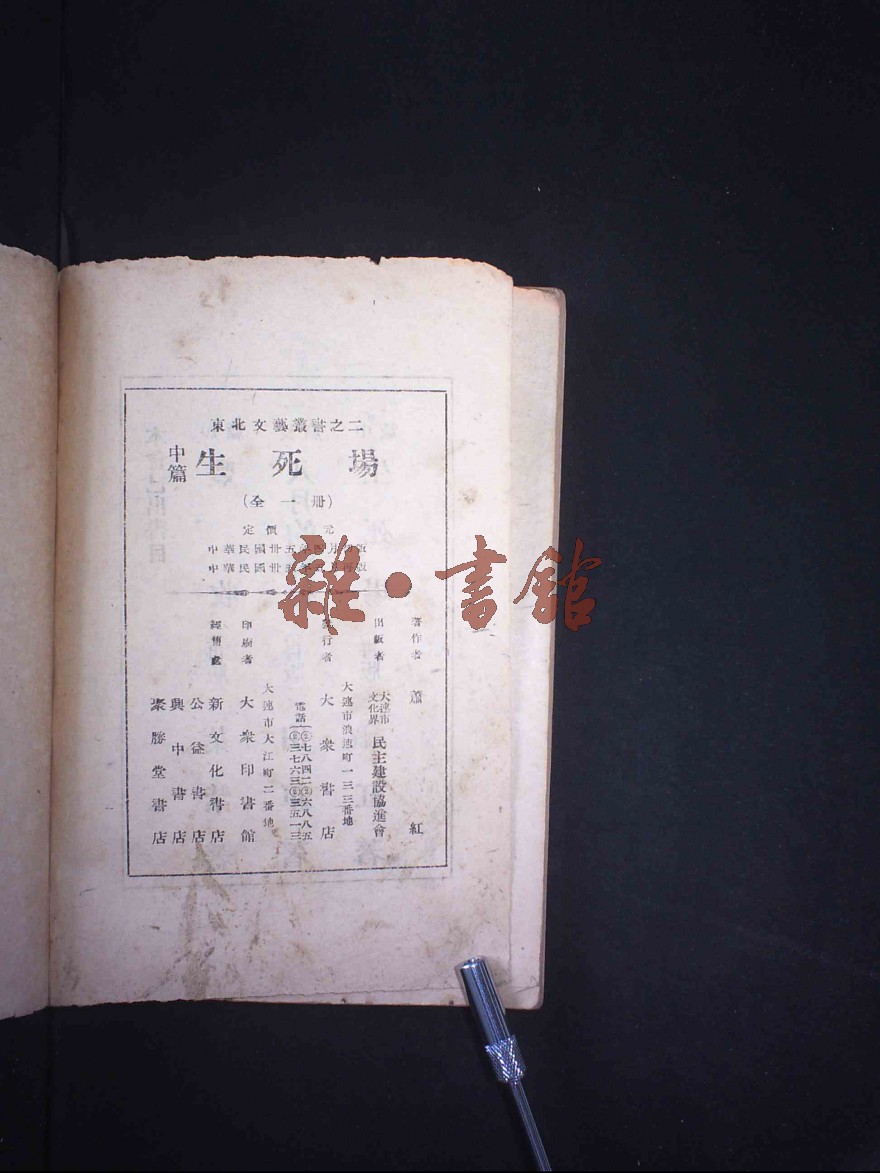 東北文藝叢書之二
中篇 生死場
(全一册)
定價 元
中華民國卅五年四月 版
中華民國卅 年 月再版
雜·書館
著作者 蕭紅
出版者 大連市文化界民主建設協進會
發行者 大衆書店
大連市浪速町一三三番地
電話(②七八四二②六八八五
③三七六三③三五一三
印刷者 大衆印書館
大連市大江町二番地
經售處 新文化書店
公益書店
興中書店
聚勝堂書店